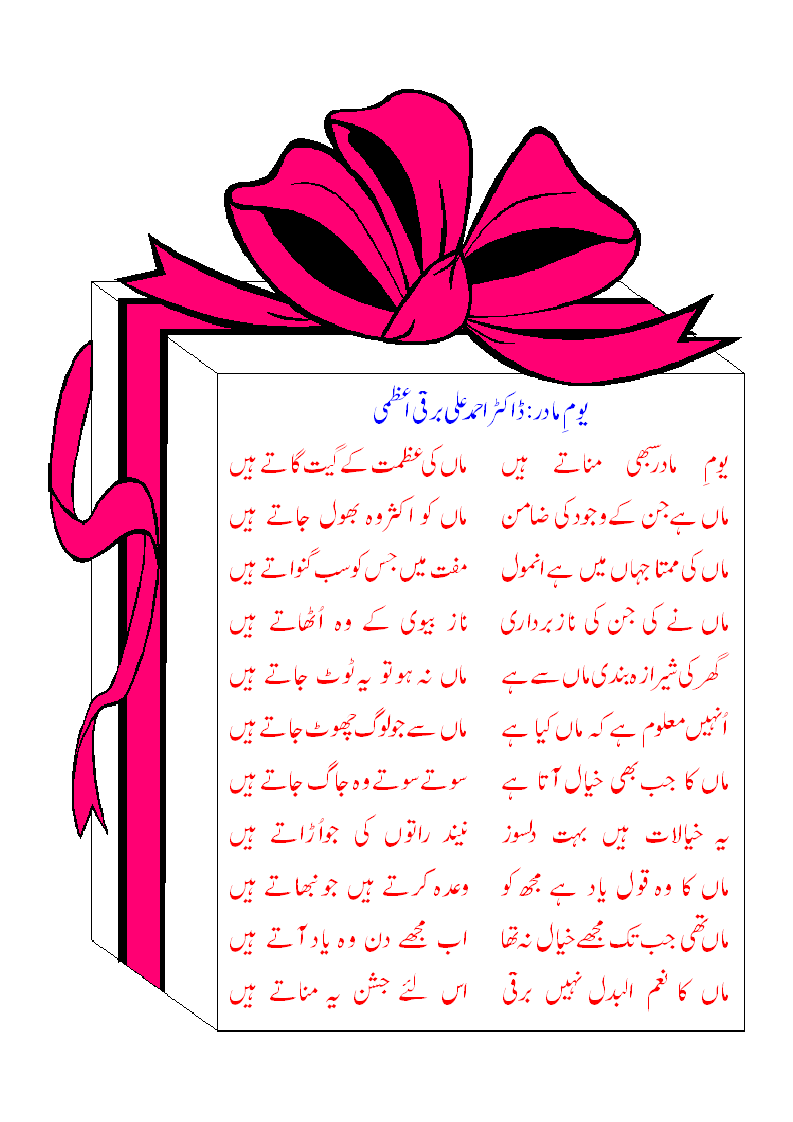 یومِ مادر: ڈاکٹر احمد علی برقی اعظمی
یومِ مادر سبھی مناتے ہیں ماں کی عظمت کے گیت گاتے ہیں
ماں ہے جن کے وجود کی ضامن ماں کو اکثر وہ بھول جاتے ہیں
ماں کی ممتا جہاں میں ہے انمول مفت میں جس کو سب گنواتے ہیں
ماں نے کی جن کی ناز برداری ناز بیوی کے وہ اُٹھاتے ہیں
گھر کی شیرازہ بندی ماں سے ہے ماں نہ ہو تو یہ ٹوٹ جاتے ہیں
اُنہیں معلوم ہے کہ ماں کیا ہے ماں سے جو لوگ چھوٹ جاتے ہیں
ماں کا جب بھی خیال آتا ہے سوتے سوتے وہ جاگ جاتے ہیں
یہ خیالات ہیں بہت دلسوز نیند راتوں کی جو اُڑاتے ہیں
ماں کا وہ قول یاد ہے مجھ کو وعدہ کرتے ہیں جو نبھاتے ہیں
ماں تھی جب تک مجھے خیال نہ تھا اب مجھے دن وہ یاد آتے ہیں
ماں کا نعم البدل نہیں برقی اس لئے جشن یہ مناتے ہیں